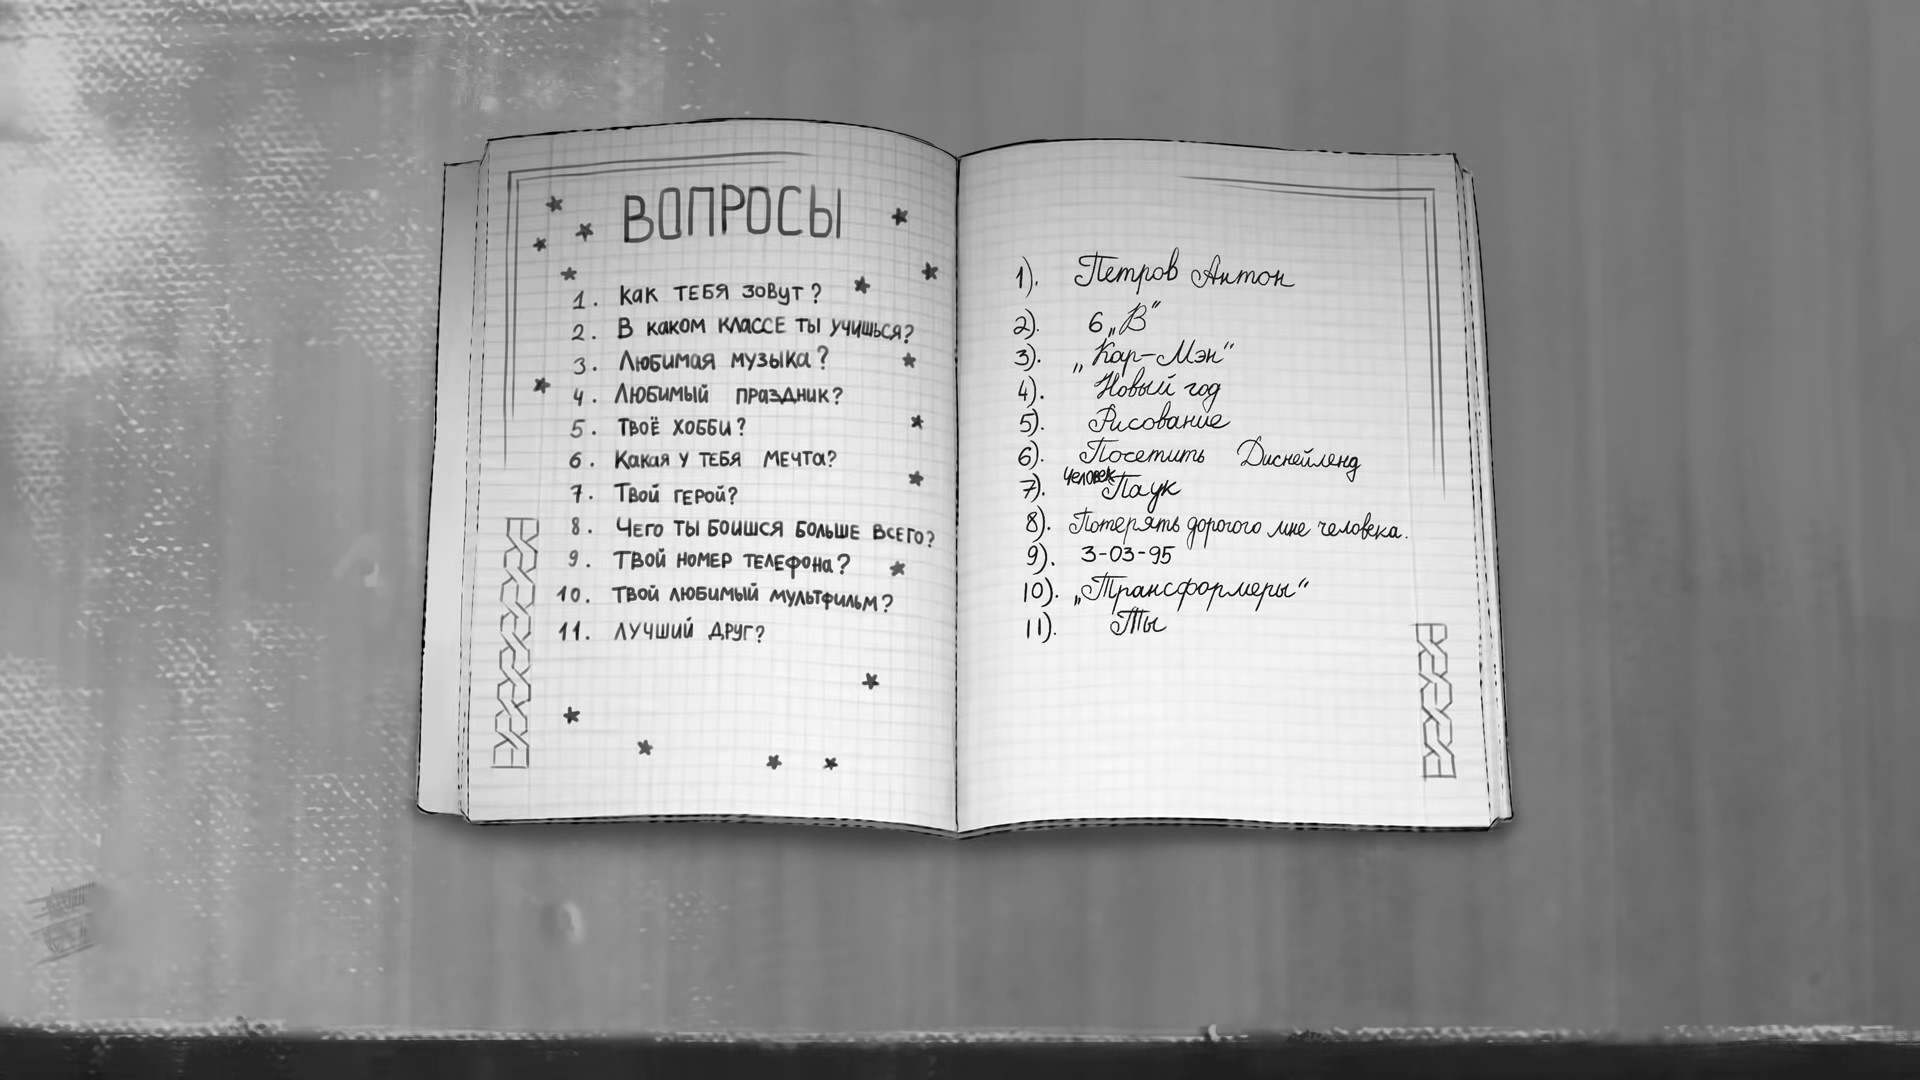 ВОПРОСЫ
1. Как тебя зовут?
2. В каком классе ты учишься?
3. Любимая музыка?
4. Любимый праздник?
5. Твоё хобби?
6. Какая у тебя мечта?
7. Твой герой?
8. Чего ты боишся больше всего?
9. Твой номер телефона?
10. Твой любимый мультфильм?
11. Лучший друг?
1). Петров Антон
2). 6 „В"
3). „Кар-Мэн"
4). Новый год
5). Рисование
6). Посетить Диснейленд
7). Человек-Паук
8). Потерять дорогого мне человека.
9). 3-03-95
10). „Трансформеры"
11). Ты